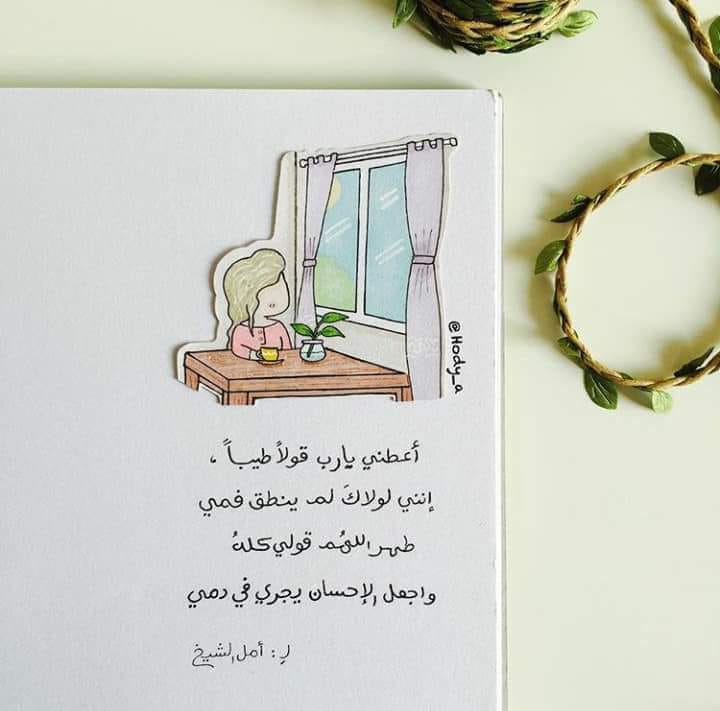 @Hody_a
أعطني يارب قولاً طيباً ،
إنني لولاكَ لم ينطق فمي
طهر اللهُم قولي كلهُ
واجعل الإحسان يجري في دمي
لِ : أمل الشيخ